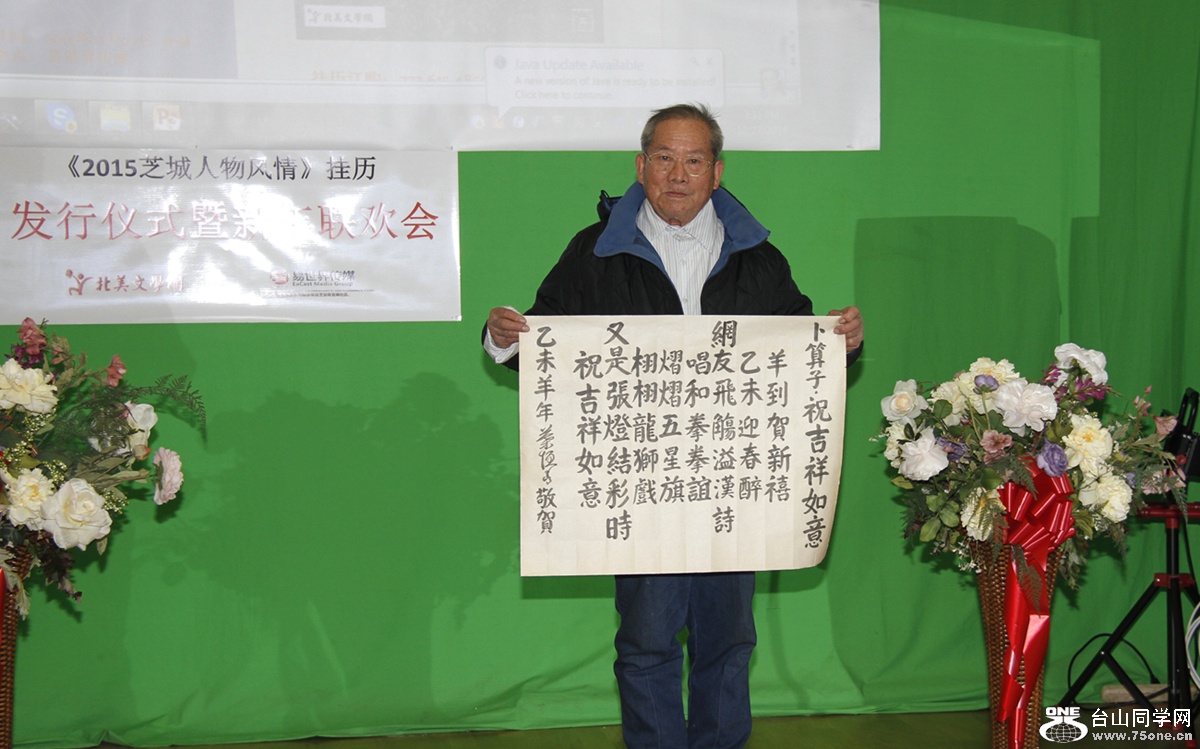 北美文學院
Java Update Available
A new version of Java is ready to be installed.
Click here to continue.
《2015芝城人物风情》挂历
发行仪式暨新年联欢会
北美文學院
易世界传媒
EsCast Media Group
卜算子·祝吉祥如意
羊到賀新禧
乙未迎春醉
網友飛觴溢漢詩
唱和拳拳誼
熠熠五星旗
栩栩龍獅戲
又是張燈結彩時
祝吉祥如意
乙未羊年
敬賀
ONE
台山同学网
www.75one.cn